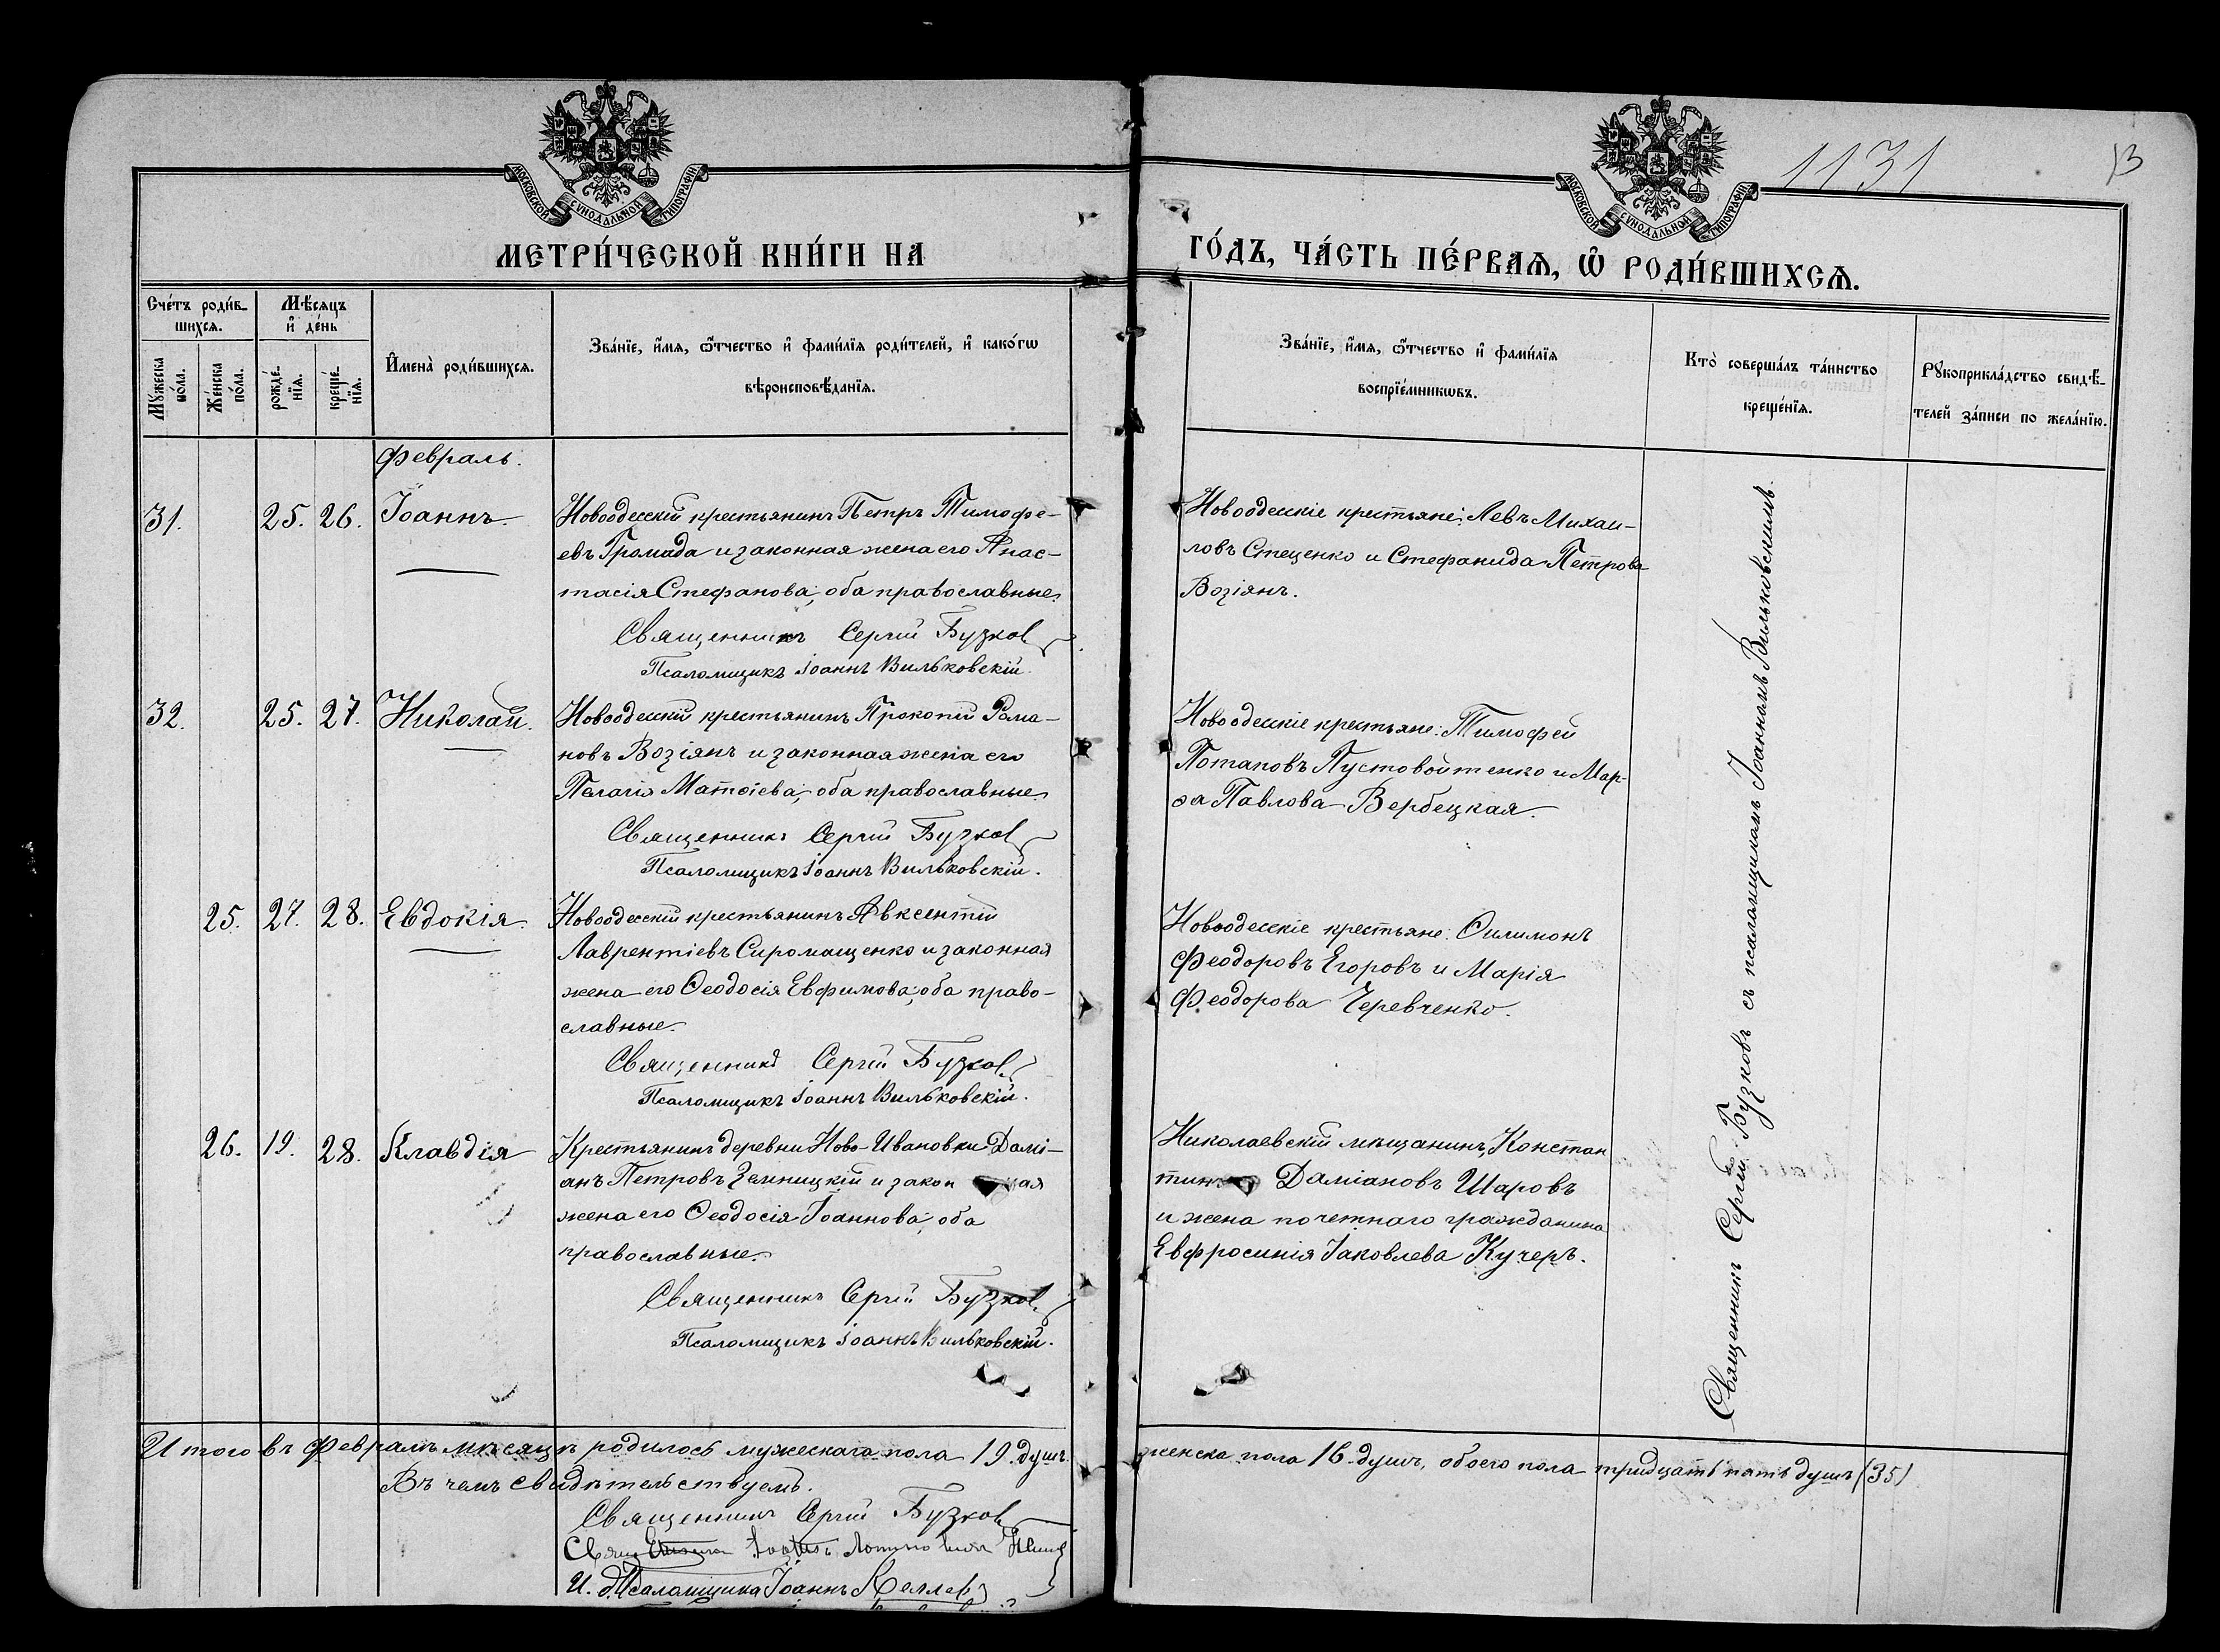 МОСКОВСКОЙ СѴНОДАЛЬНОЙ ТИПОГРАФІИ
МОСКОВСКОЙ СѴНОДАЛЬНОЙ ТИПОГРАФІИ
1131
МЕТРИ́ЧЕСКОЙ КНИ́ГИ НА
ГО́ДЪ, ЧА́СТЬ ПЕ́РВАѦ, Ѽ РОДИ́ВШИХСѦ.
Сче́тъ роди́в-
шихсѧ.
Мѣ́сѧцъ
и҆ де́нь
Мꙋ́жеска
по́ла.
Же́нска
по́ла.
рожде́-
нїѧ.
креще́-
нїѧ.
И҆мена̀ роди́вшихсѧ.
Зва́нїе, и҆́мѧ, ѻ҆́тчество и҆ фами́лїѧ роди́телей, и҆ како́гѡ
вѣроисповѣ́данїѧ.
Зва́нїе, и҆́мѧ, ѻ҆́тчество и҆ фами́лїѧ
воспрїе́мникѡвъ.
Кто̀ соверша́лъ та́инство
креще́нїѧ.
Рꙋкоприкла́дство свидѣ́-
телей за́писи по жела́нїю.
Февраль.
31. 25. 26. Іоаннъ.
Новоодесскій крестьянинъ Петръ Тимофе-
евъ Громада и законная жена его Анас-
тасія Стефанова, оба православные.
Священникъ Сергій Бузков
Псаломщикъ Іоаннъ Вильковскій.
Новоодесскіе крестьяне: Левъ Михаи-
ловъ Стеценко и Стефанида Петрова
Возіянъ.
32. 25. 27. Николай.
Новоодесскій крестьянинъ Прокопій Рома-
новъ Возіянъ и законная жена его
Пелагія Матѳіева, оба православные.
Священникъ Сергій Бузков
Псаломщикъ Іоаннъ Вильковскій.
Новоодесскіе крестьяне: Тимофей
Потаповъ Пустовойтенко и Мар-
ѳа Павлова Вербецкая.
25. 27. 28. Евдокія.
Новоодесскій крестьянинъ Авксентій
Лаврентіевъ Сиромащенко и законная
жена его Ѳеодосія Евфимова, оба право-
славные.
Священникъ Сергій Бузков
Псаломщикъ Іоаннъ Вильковскій.
Новоодесскіе крестьяне: Филимонъ
Феодоровъ Егоровъ и Марія
Феодорова Черевченко.
26. 19. 28. Клавдія
Крестьянинъ деревни Ново-Ивановки Дамі-
анъ Петровъ Земницкій и закон ная
жена его Ѳеодосія Іоаннова, оба
православные.
Священникъ Сергій Бузков
Псаломщикъ Іоаннъ Вильковскій.
Николаевскій мѣщанинъ, Констан
тинъ Даміановъ Шаровъ
и жена почетнаго гражданина
Евфросинія Іаковлева Кучеръ.
Священникъ Сергій Бузковъ съ псаломщикомъ Іоанномъ Вильковскимъ.
Итого въ Февралѣ мѣсяцѣ родилось мужескаго пола 19 душъ.
женска пола 16 душъ, обоего пола тридцать пять душъ (35)
Въ чемъ свидѣтельствуемъ.
Священникъ Сергій Бузков
И. д. Псаломщика Іоаннъ Келлеръ